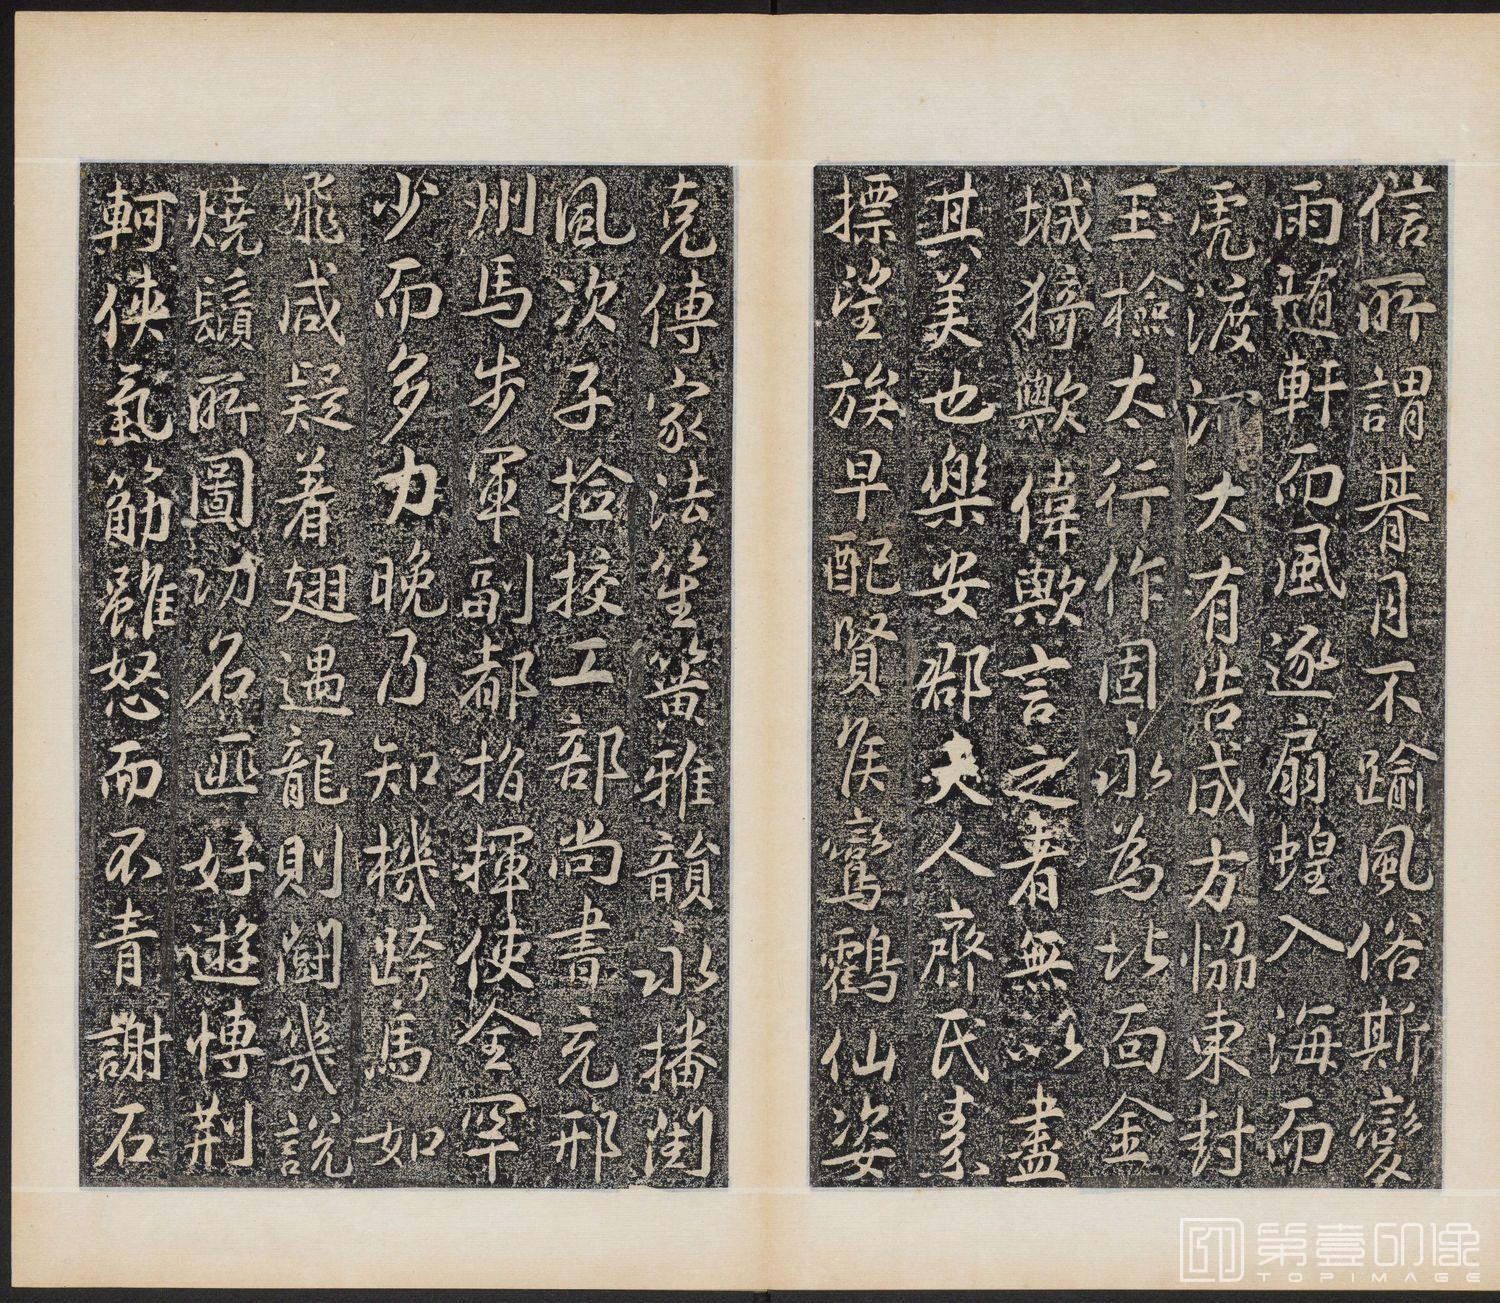 信所謂朞月不踰風俗斯變
雨隨軒而風逐扇蝗入海而
虎渡河大有告成方協東封
玉檢太行作固永為北面金
城猗歟偉歟言之者無以盡
其美也樂安郡夫人齊氏素
摽望族早配賢侯鸞鶴仙姿
克傳家法笙簧雅韻永播閨
風次子撿挍工部尚書充邢
州馬步軍副都指揮使全罕
少而多力晚乃知機跨馬如
飛咸疑着翅遇龍則鬬幾說
燒鬚所圖功名匪好遊愽荆
軻俠氣筋雖怒而不青謝石
第壹印像
TOPIMAGE